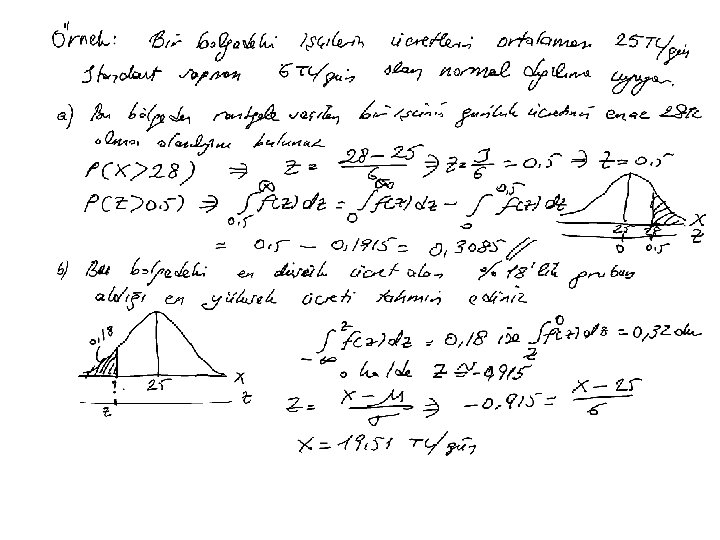 Örnek: Bir bölgedeki işçilerin ücretleri ortalaması 25 TL/gün
Standart sapması 6 TL/gün olan normal dağılıma uyuyor.
a) Bu bölgeden rastgele seçilen bir işçinin günlük ücretinin en az 28 TL
olması olasılığını bulunuz
P(X>28) ⇒ Z = \frac{28-25}{6} ⇒ Z = \frac{3}{6} = 0.5 ⇒ Z = 0.5
P(Z>0.5) ⇒ \int_{0.5}^{∞} f(z)dz = \int_{0}^{∞} f(z)dz - \int_{0}^{0.5} f(z)dz
= 0.5 - 0.1915 = 0.3085 //
25 28 X
0 0.5 Z
b) Bu bölgedeki en düşük ücret alan %18'lik grubun
aldığı en yüksek ücreti tahmin ediniz
0.18
? 25 X
z Z
\int_{-∞}^{z} f(z)dz = 0,18 ise \int_{z}^{0} f(z)dz = 0,32 dir
o halde Z ≅ -0.915
Z = \frac{X-μ}{σ} ⇒ -0.915 = \frac{X-25}{6}
X = 19.51 TL/gün